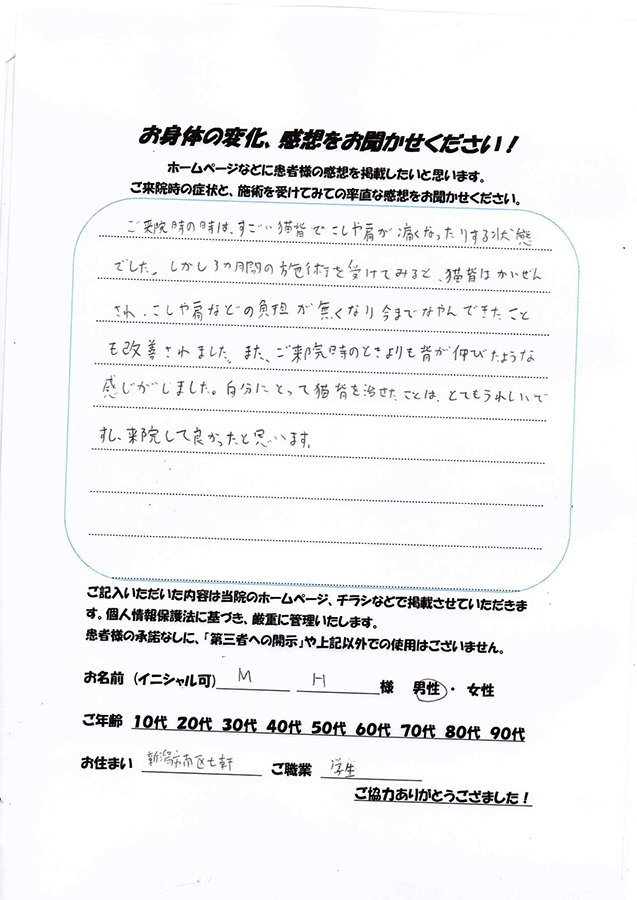 お身体の変化、感想をお聞かせください！
ホームページなどに患者様の感想を掲載したいと思います。
ご来院時の症状と、施術を受けてみての率直な感想をお聞かせください。
ご来院時の時は、すごい猫背でこしや肩が痛くなったりする状態
でした。しかし3カ月間の施術を受けてみると、猫背はかいぜん
され、こしや肩などの負担が無くなり今までなやんできたこと
も改善されました。また、ご来院時のときよりも背が伸びたような
感じがしました。自分にとって猫背を治せたことは、とてもうれしいで
すし、来院して良かったと思います。
ご記入いただいた内容は当院のホームページ、チラシなどで掲載させていただきま
す。個人情報保護法に基づき、厳重に管理いたします。
患者様の承諾なしに、「第三者への開示」や上記以外での使用はございません。
お名前（イニシャル可） M H 様 男性・女性
ご年齢 10代 20代 30代 40代 50代 60代 70代 80代 90代
お住まい 新潟市南区七軒 ご職業 学生
ご協力ありがとうござました！